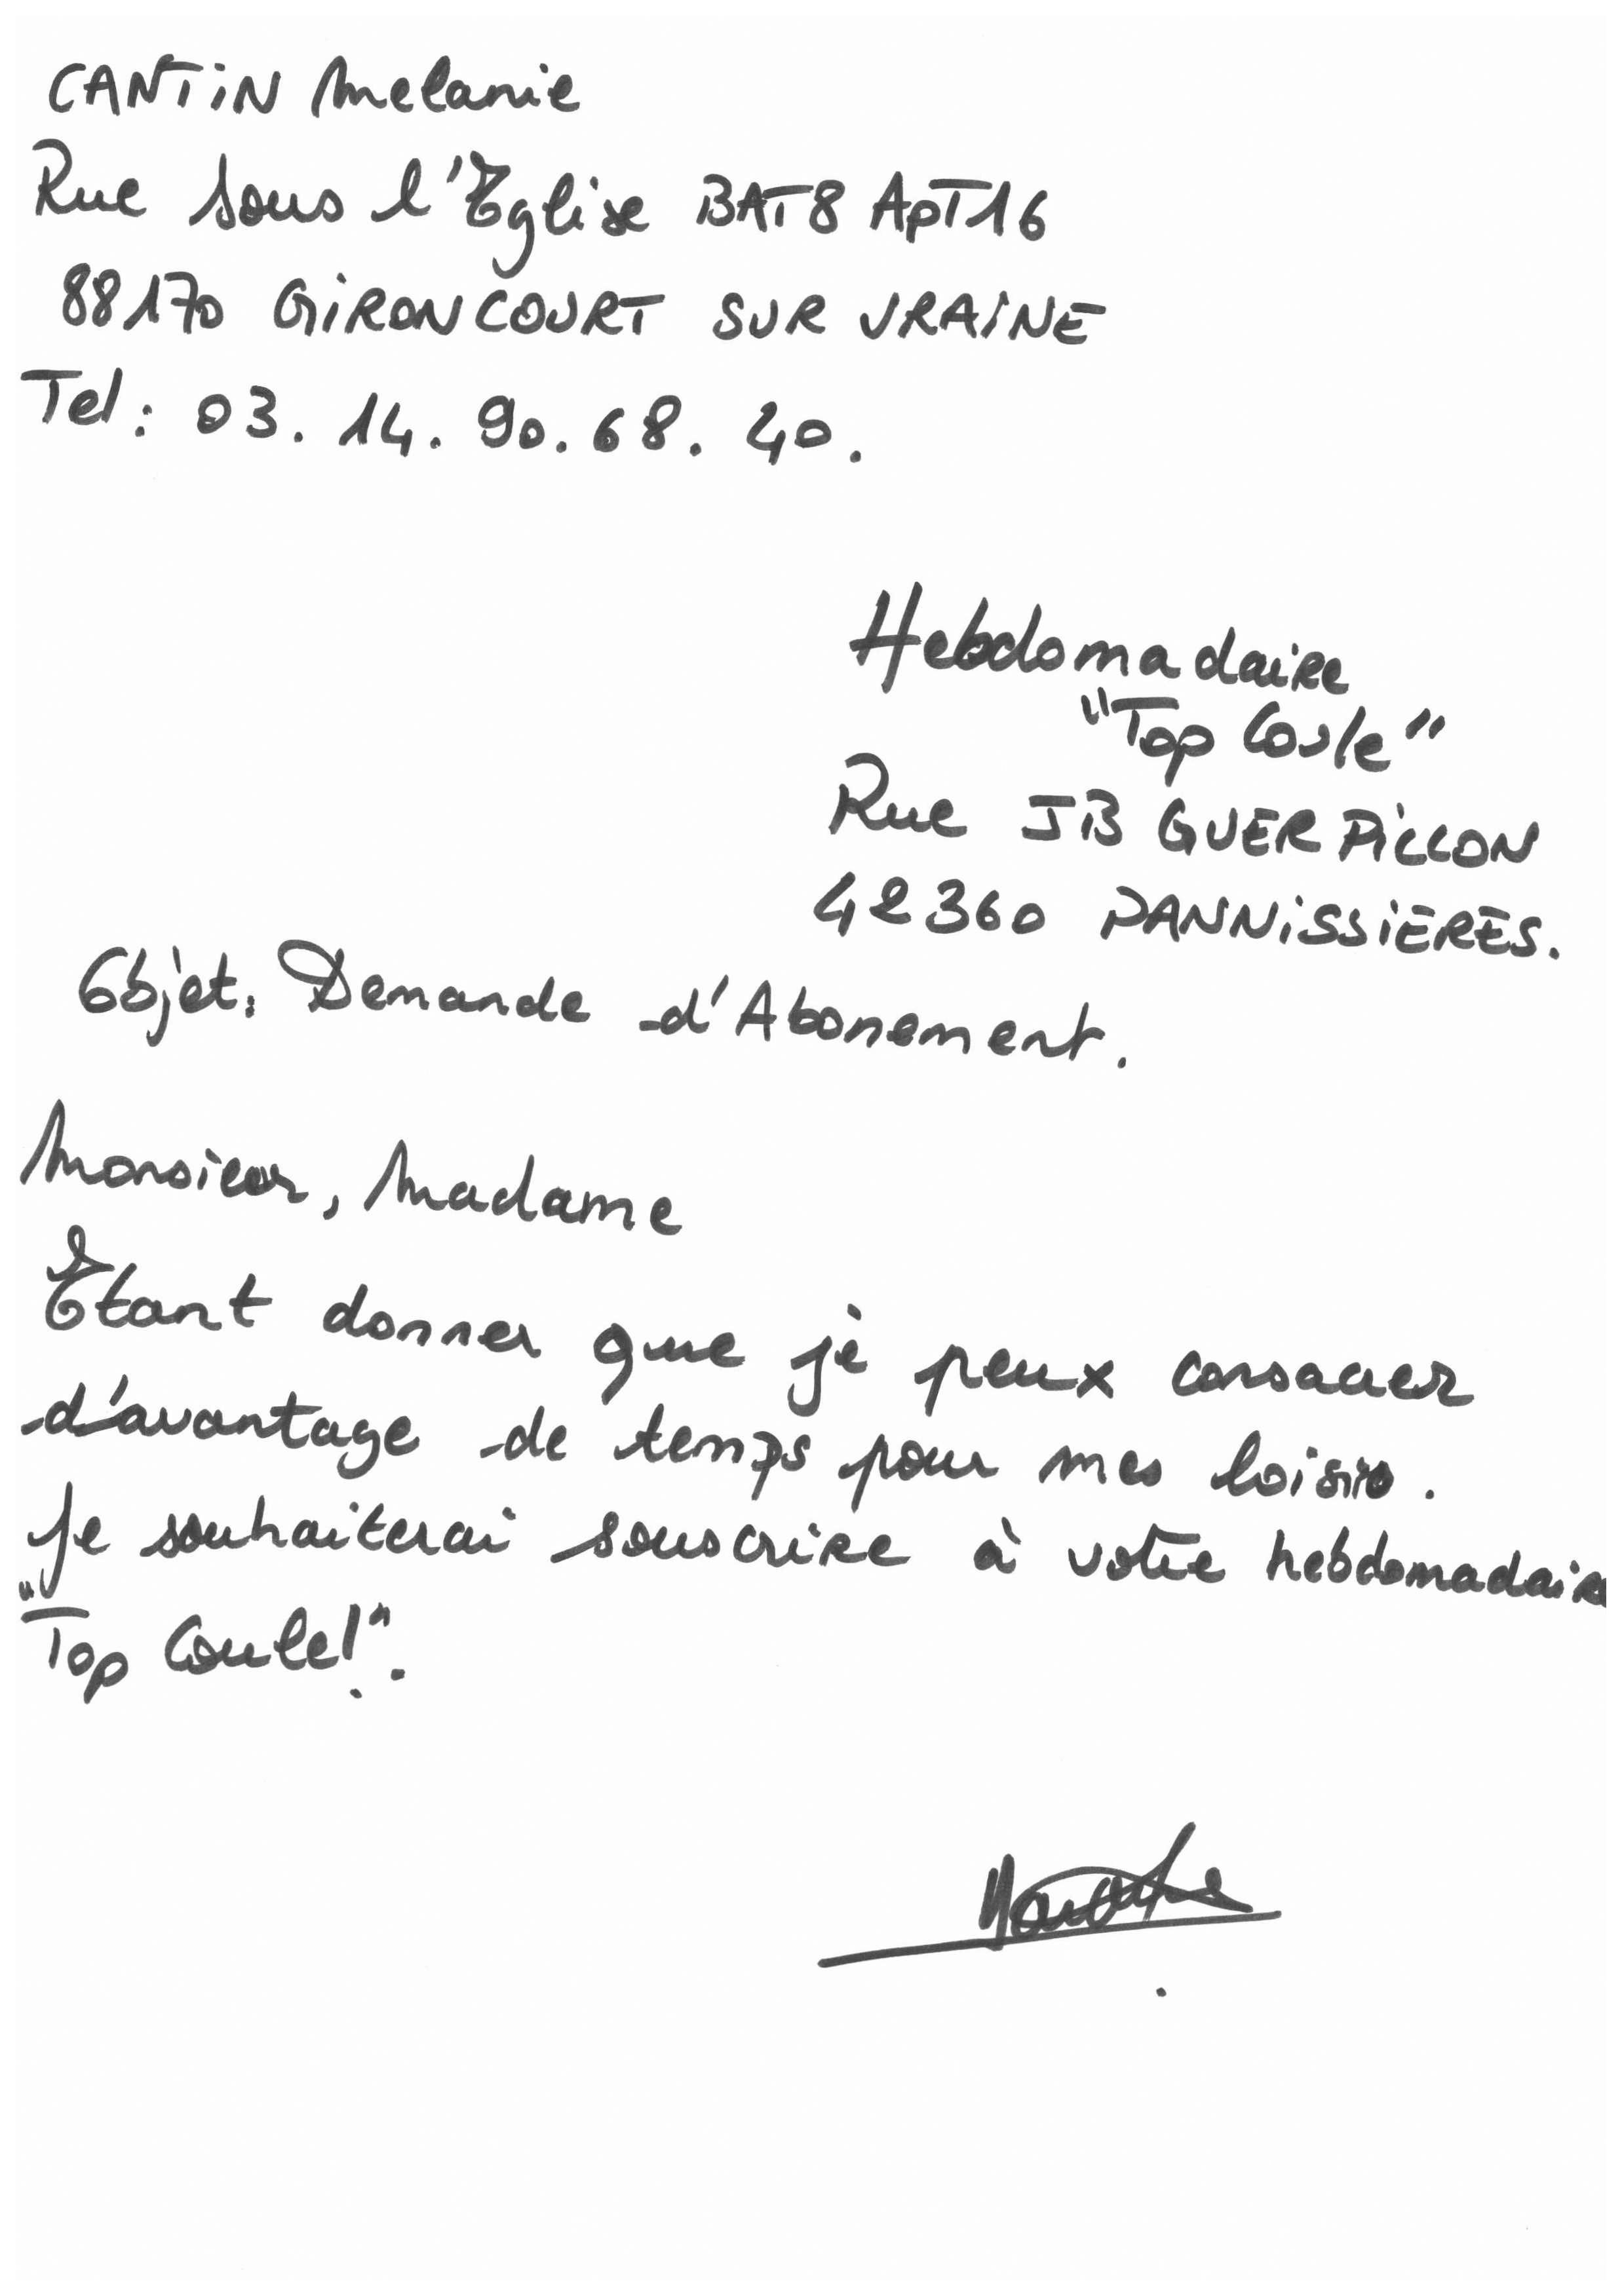 CANTIN Melanie
Rue Sous l'Eglise BAT8 ApT16
88170 GIRONCOURT SUR VRAINE
Tel: 03. 14. 90. 68. 40.
Hebdomadaire
"Top Coule"
Rue JB GUERPILLON
42360 PANNISSIERES.
Objet: Demande d'Abonement.
Monsieur, Madame
Etant donner que je peux consacrer
d'avantage de temps pour mes loisirs.
Je souhaiterai souscrire à votre hebdomadaire
"Top Coule!".